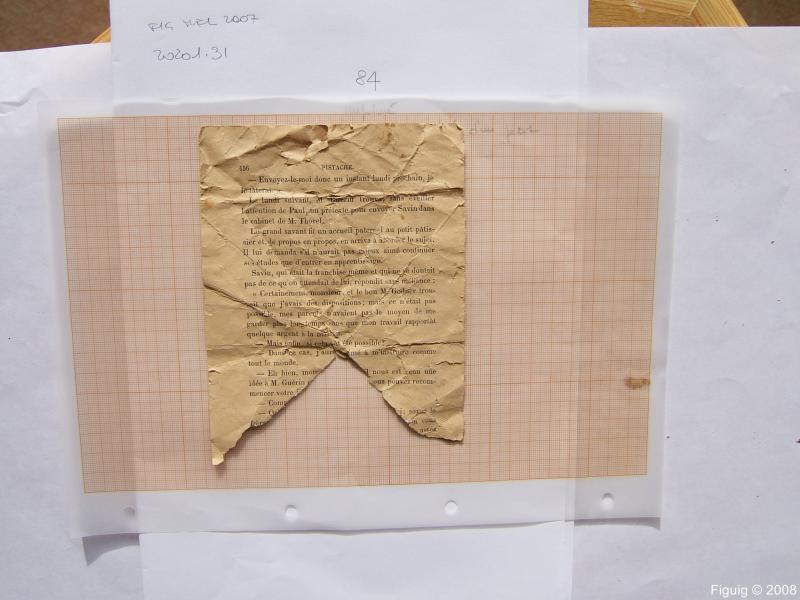 2007
20201.31
84
d'un petit
156 PISTACHE.
— Envoyez-le-moi donc un instant lundi prochain, je
le tâterai. »
Le lundi suivant, M. Guérin trouva, sans éveiller
l'attention de Paul, un prétexte pour envoyer Savin dans
le cabinet de M. Thorel.
Le grand savant fit un accueil paternel au petit pâtis-
sier et, de propos en propos, en arriva à aborder le sujet.
Il lui demanda s'il n'aurait pas mieux aimé continuer
ses études que d'entrer en apprentissage.
Savin, qui était la franchise même et qui ne se doutait
pas de ce qu'on attendait de lui, répondit sans méfiance :
« Certainement, monsieur, et le bon M. trou-
vait que j'avais des dispositions; mais ce n'était pas
possible, mes parents n'avaient pas le moyen de me
garder plus longtemps sans que mon travail rapportât
quelque argent à la maison.
— Mais enfin, si cela eût été possible?
— Dans ce cas, j'aurais aimé à m'instruire comme
tout le monde.
— Eh bien, mon il nous est venu une
idée à M. Guérin vous pouvez recom-
mencer votre
— Com
— soyez le
vous
Figuig © 2008